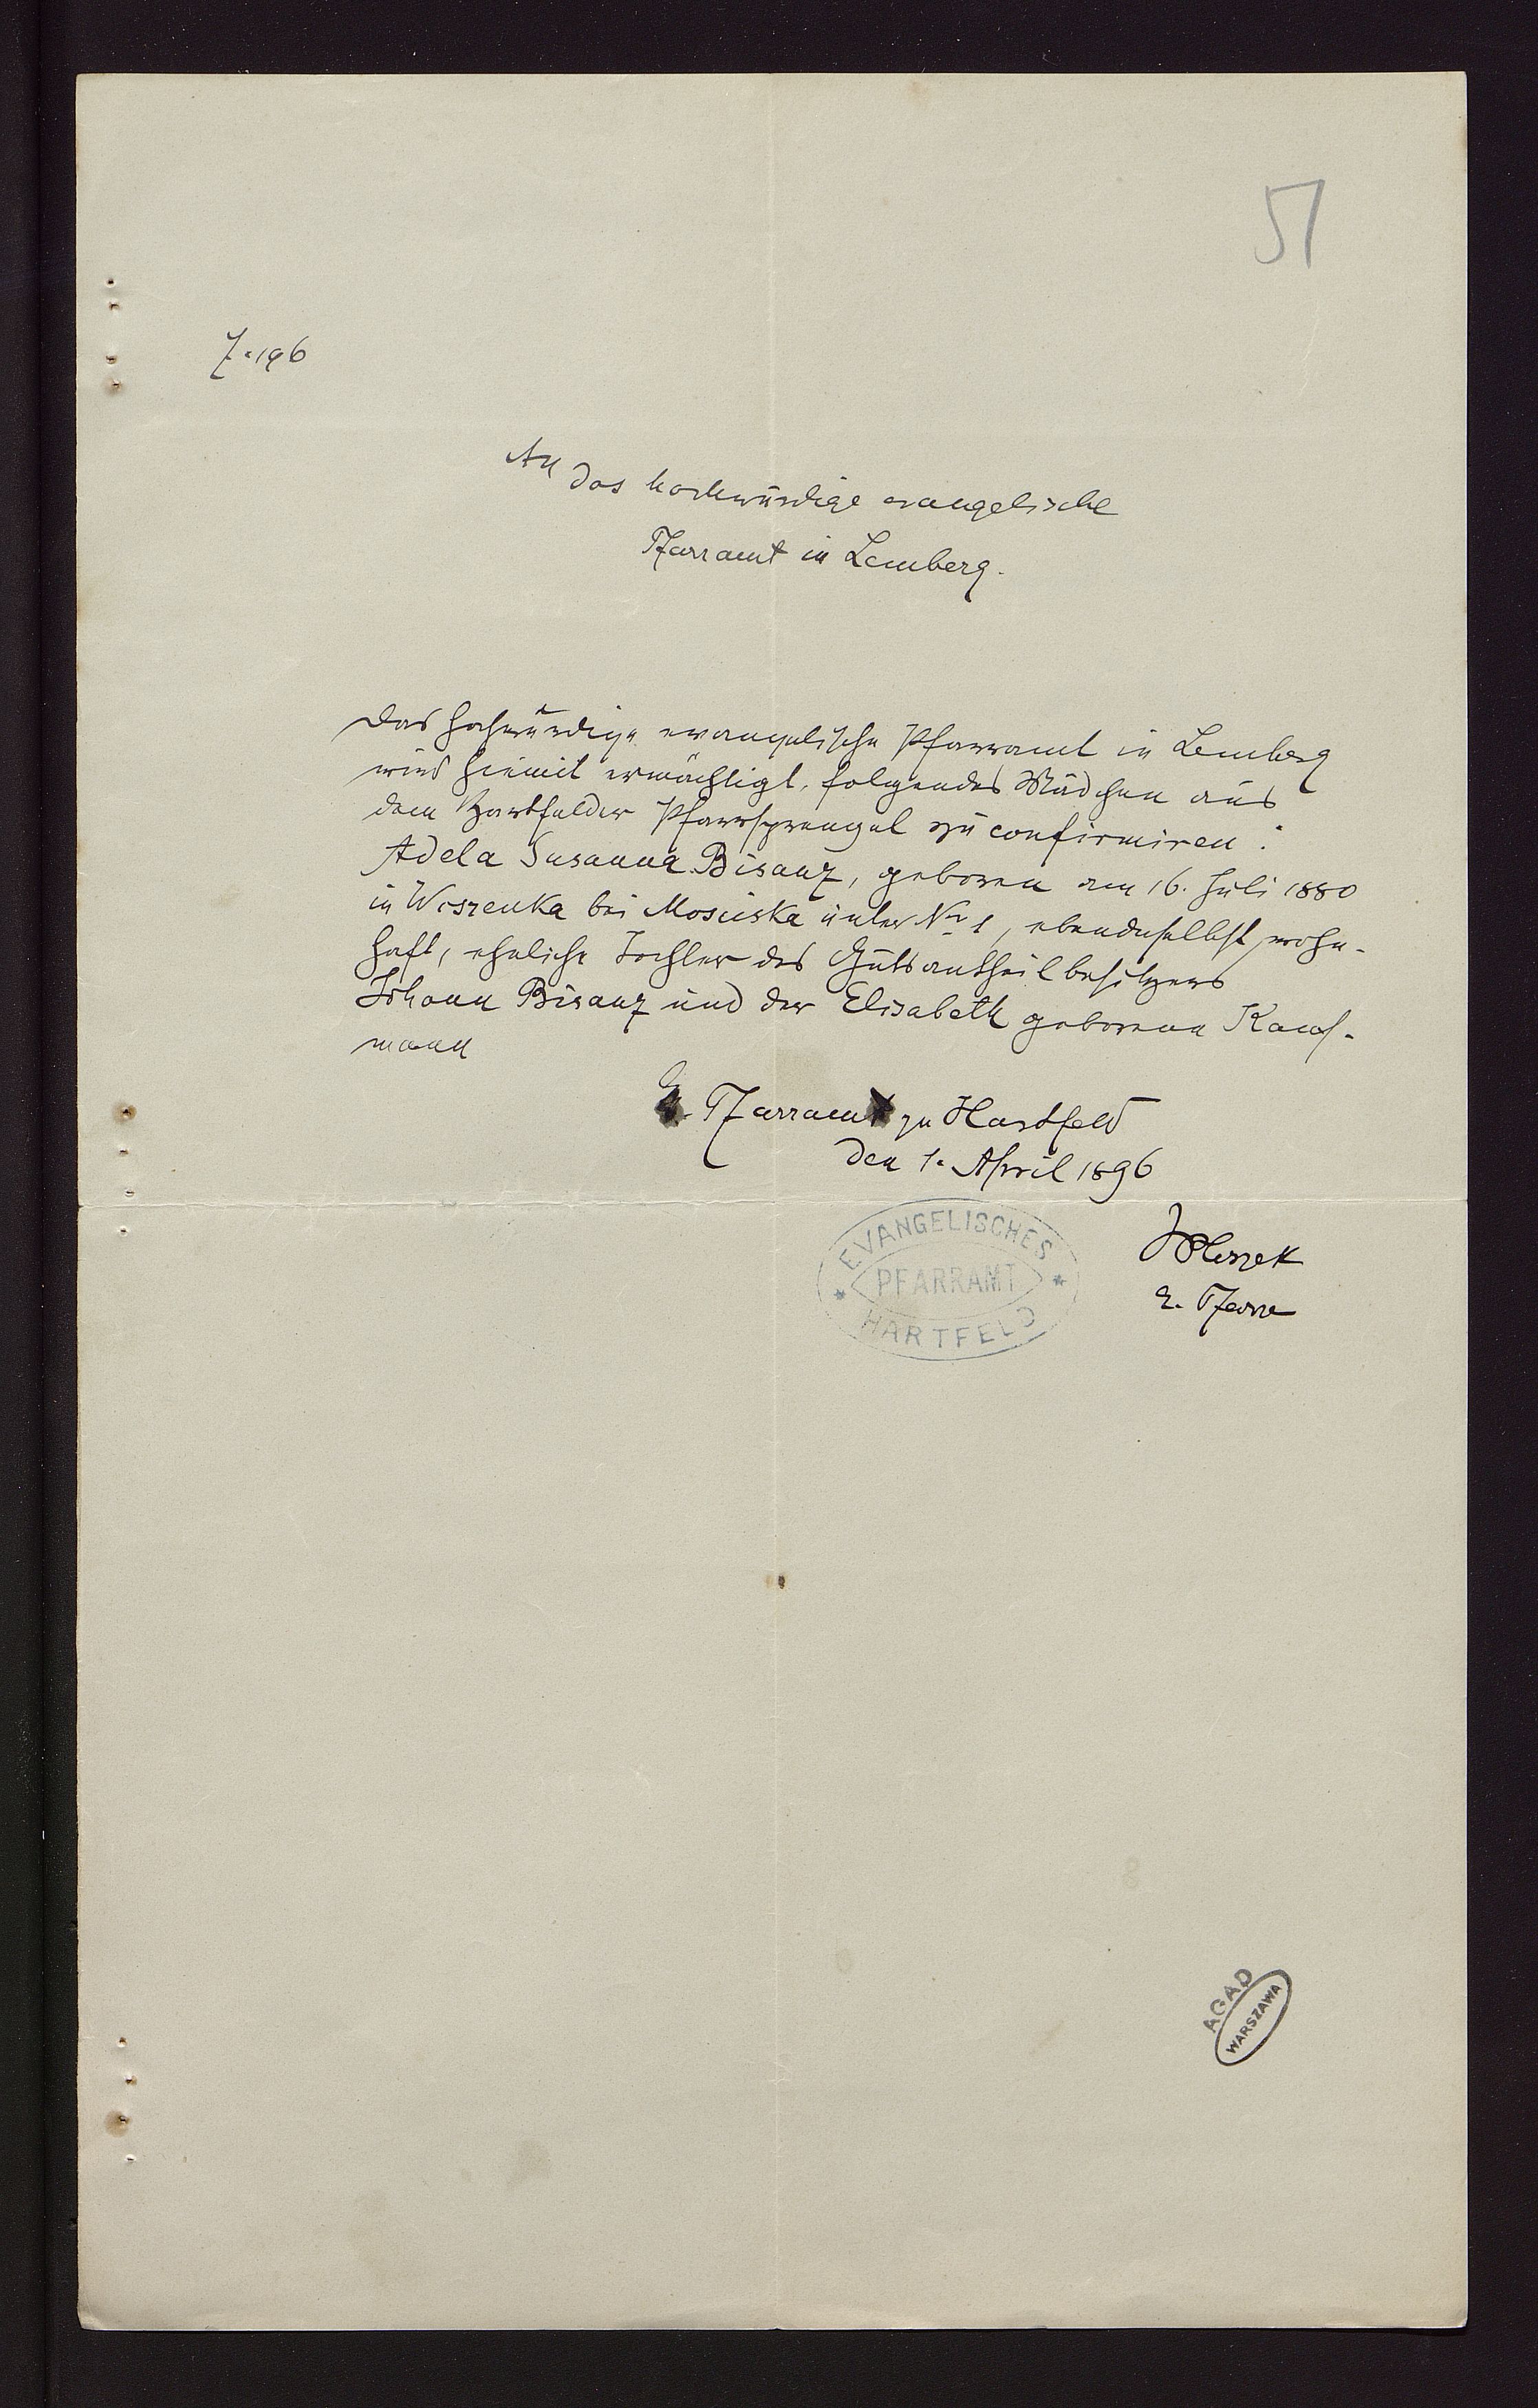 51
Z. 196
An das hochwürdige evangelische
Pfarramt in Lemberg.
Das hochwürdige evangelische Pfarramt in Lemberg
wird hiemit ermächtigt, folgendes Mädchen aus
dem Hartfelder Pfarrsprengel zu confirmiren:
Adela Susanna Bisanz, geboren am 16. Juli 1880
in Wiszenka bei Mosciska unter Nr 1, ebendaselbst wohn-
haft, eheliche Tochter des Gutsantheilbesitzers
Johann Bisanz und der Elisabeth geborenen Kauf-
mann
E. Pfarramt zu Hartfeld
den 1. April 1896
EVANGELISCHES
PFARRAMT
HARTFELD
E. Pfarrer
AGAD
WARSZAWA